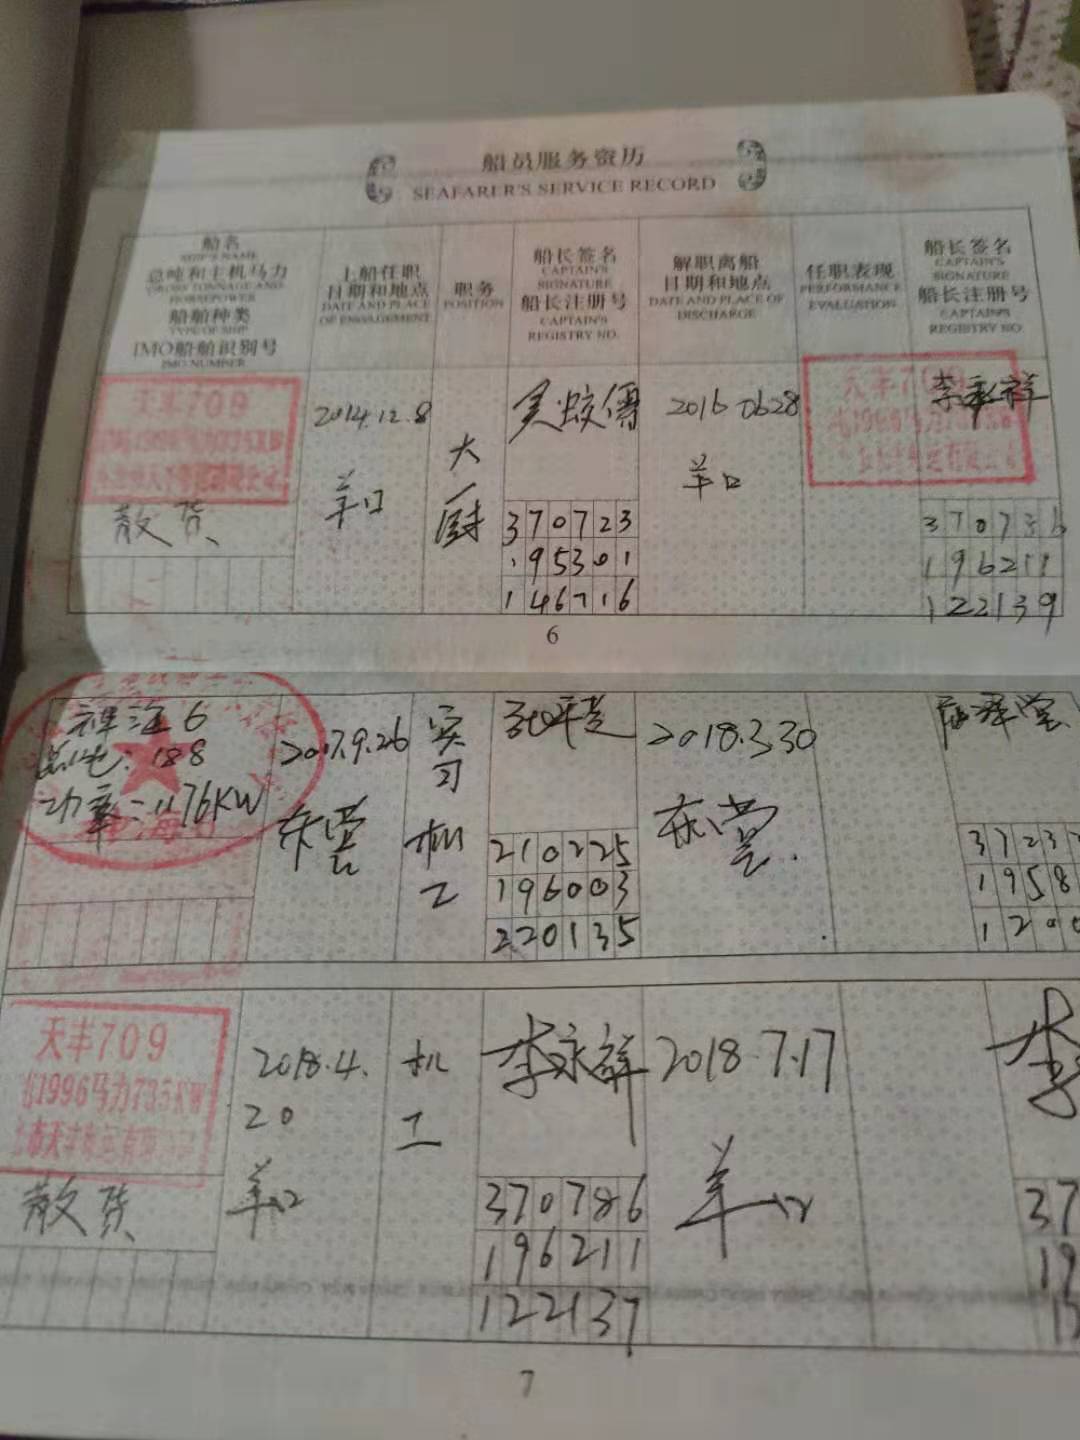 船员服务资历
SEAFARER'S SERVICE RECORD
船名
SHIP'S NAME
总吨和主机马力
GROSS TONNAGE AND
HORSEPOWER
船舶种类
TYPE OF SHIP
IMO船舶识别号
IMO NUMBER
上船任职
日期和地点
DATE AND PLACE
OF ENGAGEMENT
职务
POSITION
船长签名
CAPTAIN'S
SIGNATURE
船长注册号
CAPTAIN'S
REGISTRY NO.
解职离船
日期和地点
DATE AND PLACE OF
DISCHARGE
任职表现
PERFORMANCE
EVALUATION
船长签名
CAPTAIN'S
SIGNATURE
船长注册号
CAPTAIN'S
REGISTRY NO
天丰709
散货
2014.12.8
羊口
大
厨
370723
195301
146716
2016 0628
羊口
天丰709
李永祥
3707
196211
122139
6
6
总吨:188
功率:1176KW
2017.9.26
东营
实
习
机
工
210225
196003
220135
2018.3.30
东营
37232
1958
120
天丰709
1996马力735KW
散货
2018.4.
20
羊口
机
工
李永祥
370786
196211
122137
2018.7.17
羊口
李
37
19
7